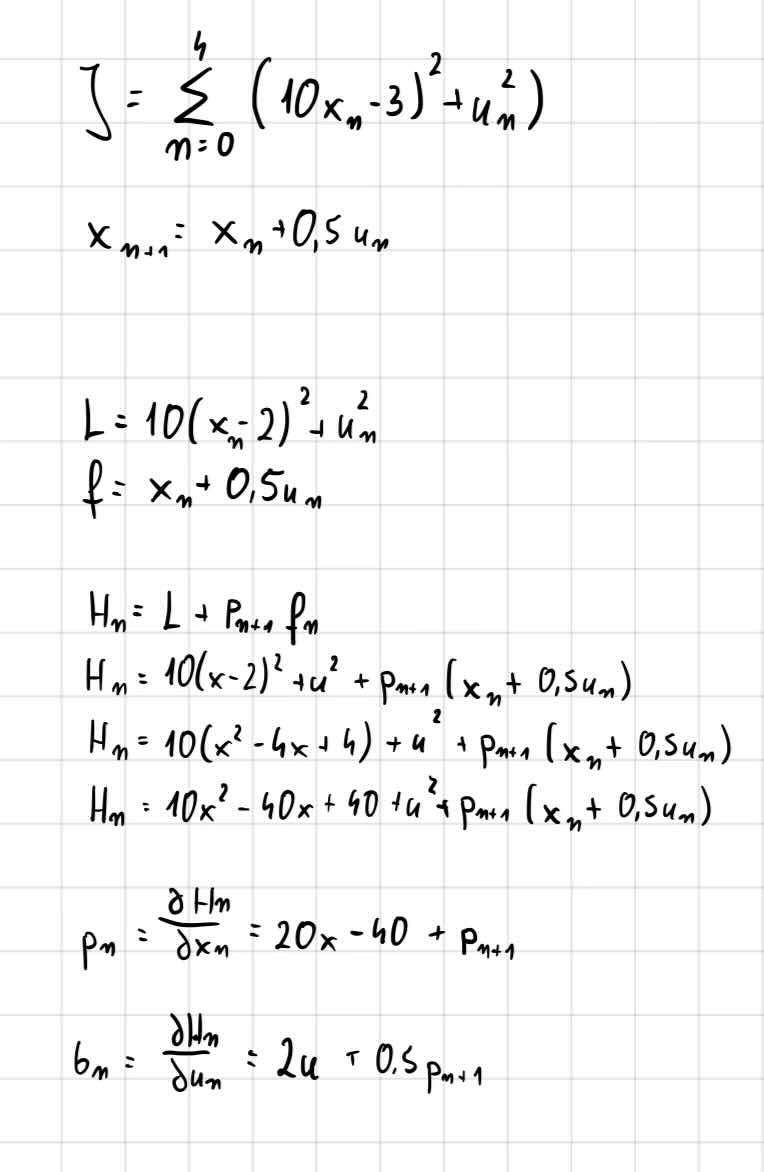 J = ∑_{n=0}^{4} (10x_n - 3)^2 + u_n^2)
x_{n+1} = x_n + 0,5 u_n
L = 10(x_n - 2)^2 + u_n^2
f = x_n + 0,5u_n
H_n = L + p_{n+1} f_n
H_n = 10(x-2)^2 + u^2 + p_{n+1} (x_n + 0,5u_n)
H_n = 10(x^2 - 4x + 4) + u^2 + p_{n+1} (x_n + 0,5u_n)
H_n = 10x^2 - 40x + 40 + u^2 + p_{n+1} (x_n + 0,5u_n)
p_n = ∂H_n/∂x_n = 20x - 40 + p_{n+1}
b_n = ∂H_n/∂u_n = 2u + 0,5 p_{n+1}